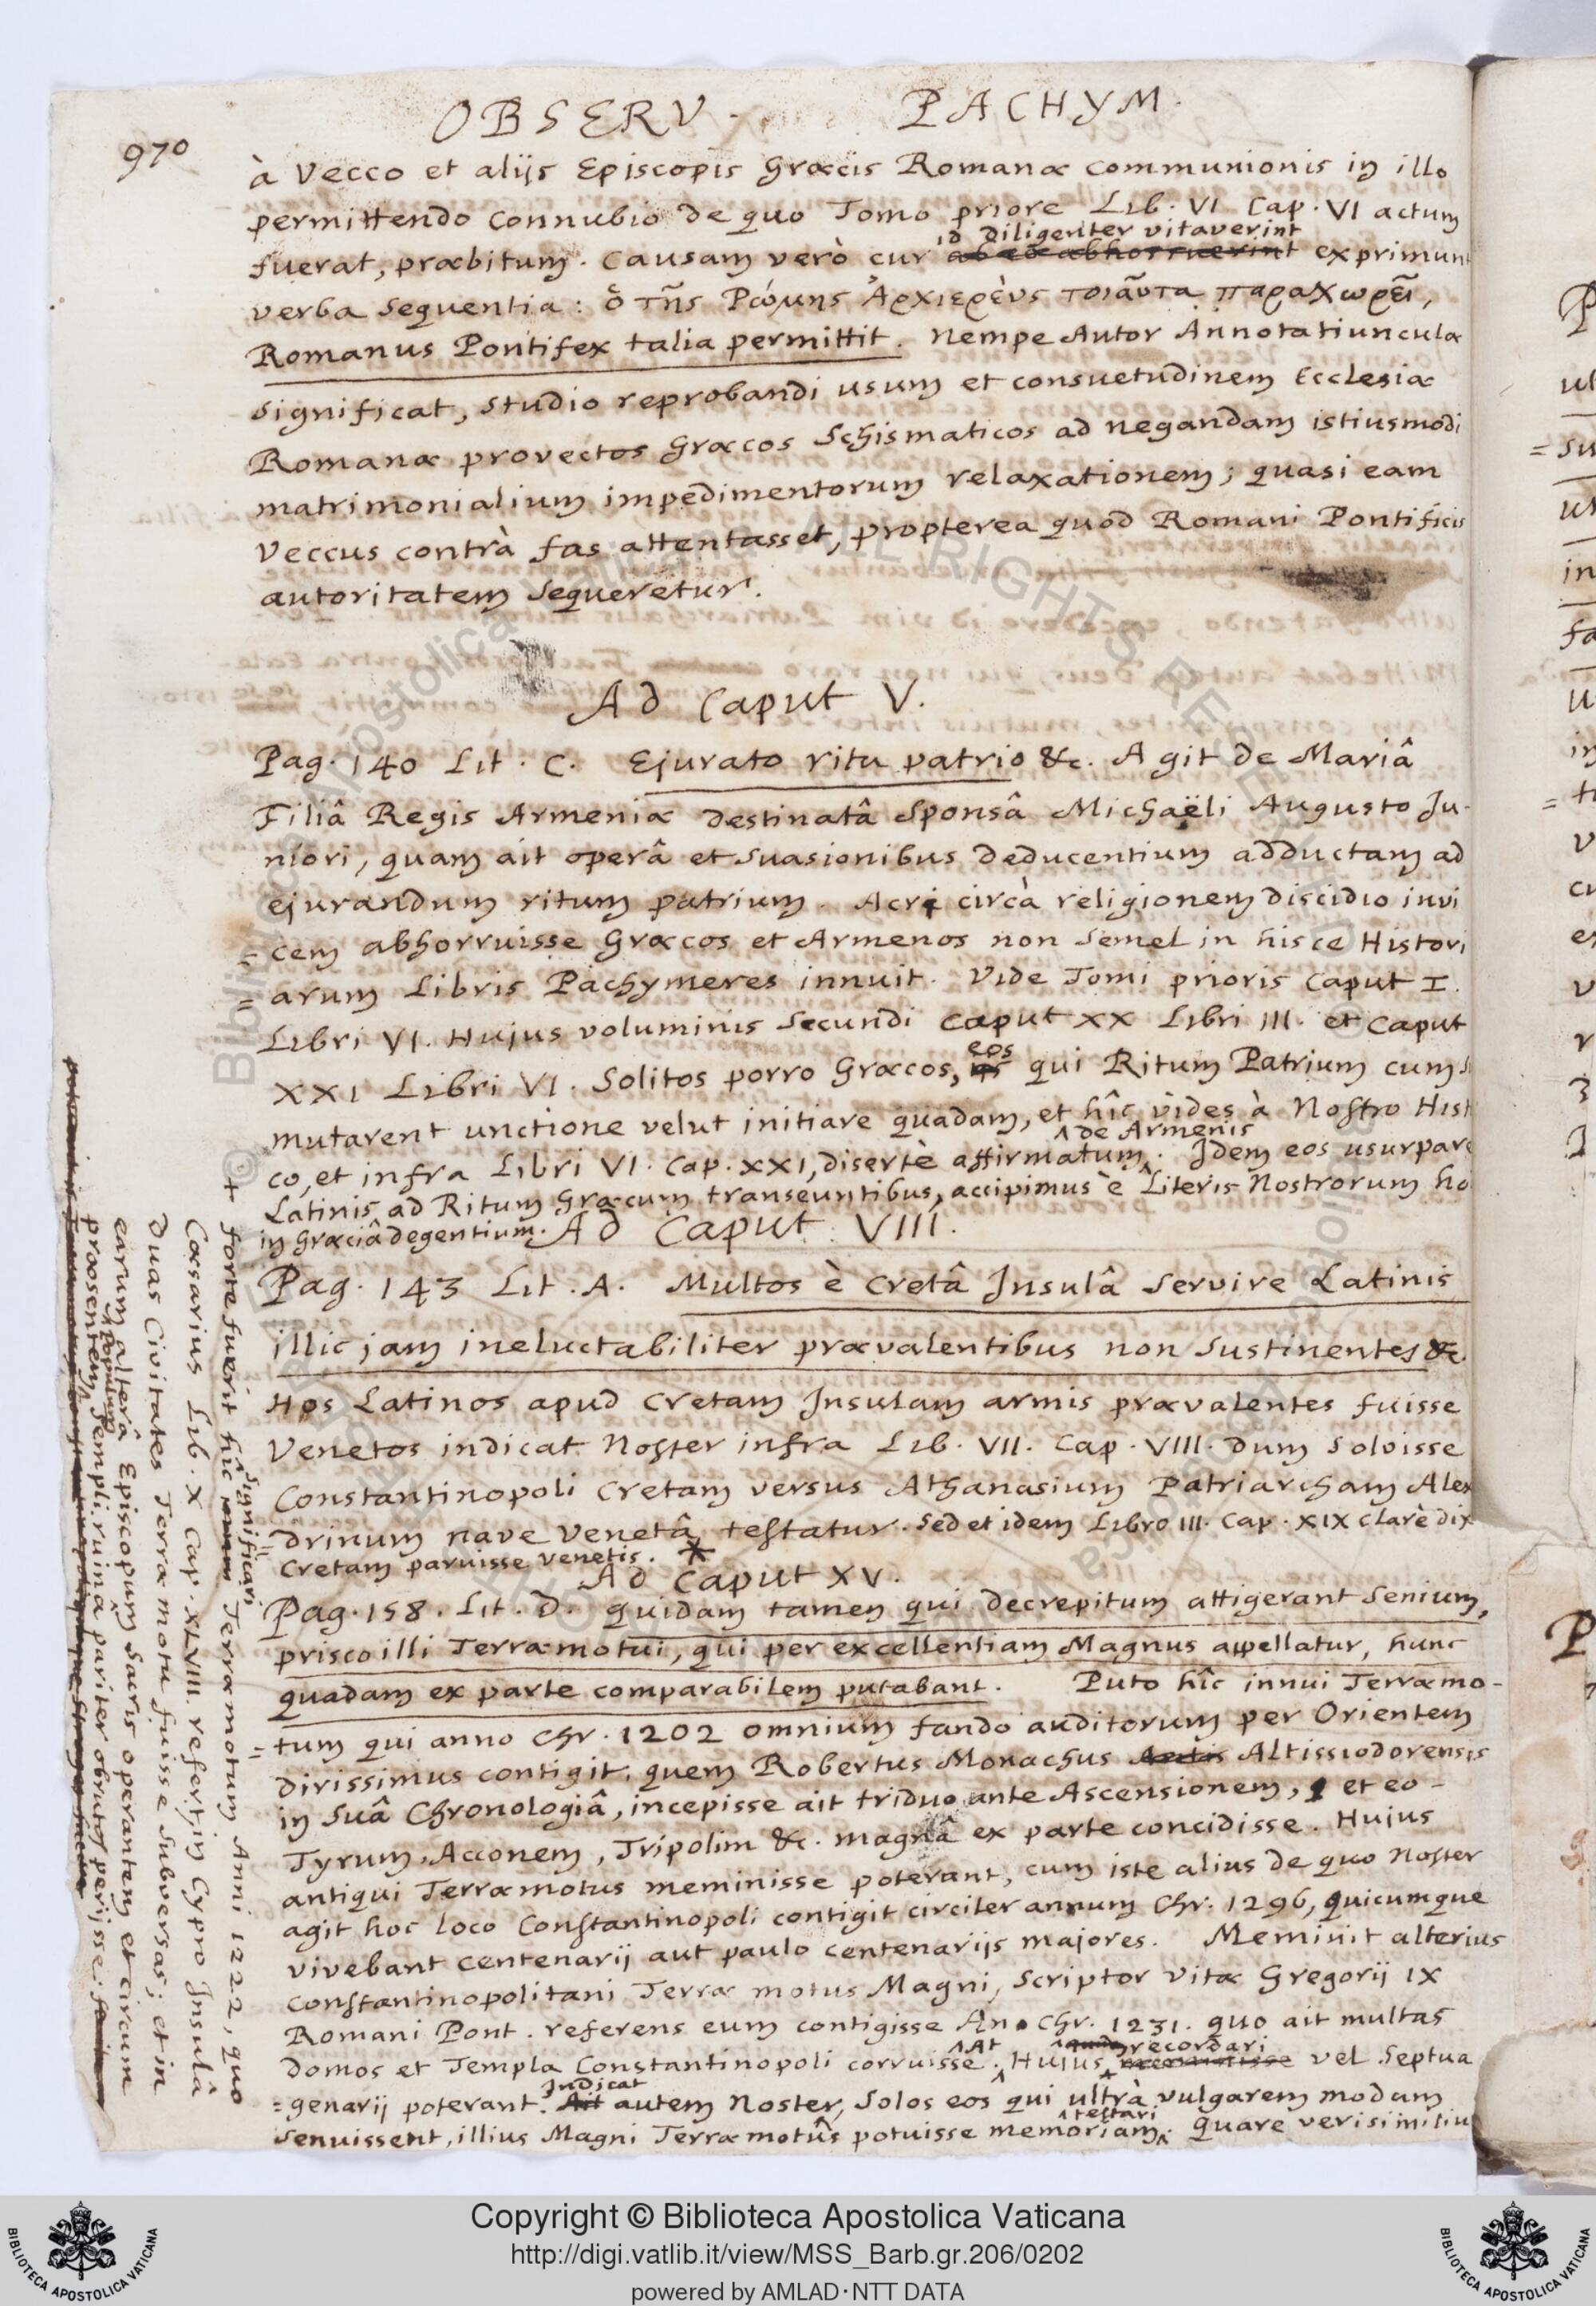 970
OBSERV. PACHYM.
à Vecco et alijs Episcopis Græcis Romanæ communionis in illo
permittendo connubio de quo Tomo priore Lib. VI Cap. VI actum
id diligenter vitaverint
fuerat, præbitum. Causam verò cur ab eo abhorruerint exprimunt
verba sequentia: ὁ τῆς Ρώμης Ἀρχιερὲυς τοιᾶυτα παραχωρεῖ,
Romanus Pontifex talia permittit. Nempe Autor Annotatiunculæ
significat, studio reprobandi usum et consuetudinem Ecclesiæ
Romanæ provectos Græcos Schismaticos ad negandam istiusmodi
matrimonialium impedimentorum relaxationem; quasi eam
Veccus contrà fas attentasset, propterea quod Romani Pontificis
autoritatem sequeretur.
Ad Caput V.
Pag. 140 Lit. C. Ejurato ritu patrio &c. Agit de Mariâ
Filiâ Regis Armeniæ destinatâ Sponsâ Michaëli Augusto Ju-
niori, quam ait operâ et suasionibus deducentium adductam ad
ejurandum ritum patrium. Acri circà religionem discidio invi
= cem abhorruisse Græcos et Armenos non semel in hisce Histori
= arum Libris Pachymeres innuit. Vide Tomi prioris Caput I.
Libri VI. Hujus voluminis Secundi Caput XX Libri III. et Caput
eos
XXI Libri VI. Solitos porro Græcos, qui Ritum Patrium cum
mutarent unctione velut initiare quadam, et hîc vides à Nostro Hist
de Armenis
co, et infra Libri VI. Cap. XXI, disertè affirmatum. Idem eos usurpare
Latinis ad Ritum Græcum transeuntibus, accipimus è Literis Nostrorum ho
in Græciâ degentium. Ad Caput VIII.
Pag. 143 Lit. A. Multos è Cretâ Insulâ servire Latinis
illic jam ineluctabiliter prævalentibus non sustinentes &c.
Hos Latinos apud Cretam Insulam armis prævalentes fuisse
Venetos indicat Noster infra Lib. VII. Cap. VIII. dum solvisse
Constantinopoli Cretam versus Athanasium Patriarcham Alex
= drinum nave Venetâ testatur. Sed et idem Libro III. Cap. XIX clarè dix
Cretam paruisse Venetis. *
Ad Caput XV.
Pag. 158. Lit. D. Quidam tamen qui decrepitum attigerant Senium,
prisco illi Terræmotui, qui per excellentiam Magnus appellatur, hunc
quadam ex parte comparabilem putabant. Puto hîc innui Terræmo-
= tum qui anno Chr. 1202 omnium fando auditorum per Orientem
dirissimus contigit, quem Robertus Monachus Altissiodorensis
in suâ Chronologiâ, incepisse ait triduo ante Ascensionem, et eo-
Tyrum, Acconem, Tripolim &c. magnâ ex parte concidisse. Hujus
antiqui Terræmotus meminisse poterant, cum iste alius de quo Noster
agit hoc loco Constantinopoli contigit circiter annum Chr. 1296, quicumque
vivebant centenarij aut paulo centenarijs majores. Meminit alterius
Constantinopolitani Terræ motus Magni, Scriptor Vitæ Gregorij IX
Romani Pont. referens eum contigisse An. Chr. 1231. quo ait multas
At recordari
domos et Templa Constantinopoli corruisse. Hujus vel Septua
Indicat
= genarij poterant. Ait autem Noster, solos eos qui ultrà vulgarem modum
testari
senuissent, illius Magni Terræmotûs potuisse memoriam. Quare verisimiliu
+ forte fuerit hîc significari Terræmotum Anni 1222, quo
Cæsarius Lib. X Cap. XLVIII. refert in Cypro Insulâ
duas Civitates Terræmotu fuisse subversas; et in
earum alterâ Episcopum Sacris operantem et circum
præsentem populum, Templi ruina pariter obrutos perijsse.